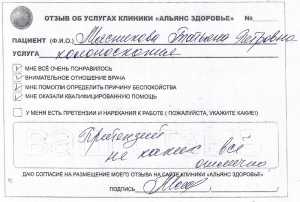 ОТЗЫВ ОБ УСЛУГАХ КЛИНИКИ «АЛЬЯНС ЗДОРОВЬЕ» №
ПАЦИЕНТ (Ф.И.О.) Татьяна Петровна
УСЛУГА колоноскопия
МНЕ ВСЁ ОЧЕНЬ ПОНРАВИЛОСЬ
ВНИМАТЕЛЬНОЕ ОТНОШЕНИЕ ВРАЧА
МНЕ ПОМОГЛИ ОПРЕДЕЛИТЬ ПРИЧИНУ БЕСПОКОЙСТВА
МНЕ ОКАЗАЛИ КВАЛИФИЦИРОВАННУЮ ПОМОЩЬ
У МЕНЯ ЕСТЬ ПРЕТЕНЗИИ И НАРЕКАНИЯ К РАБОТЕ ( ПОЖАЛУЙСТА, УКАЖИТЕ КАКИЕ!)
Претензий
не каких всё
отлично
ДАЮ СОГЛАСИЕ НА РАЗМЕЩЕНИЕ МОЕГО ОТЗЫВА НА САЙТЕ КЛИНИКИ «АЛЬЯНС ЗДОРОВЬЕ»
ПОДПИСЬ